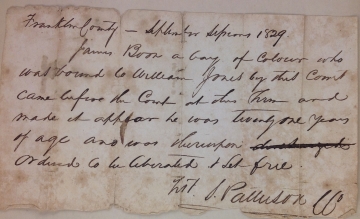 Franklin County — September Sessions 1829
James Boon a boy of Colour who
was bound to William Jones by this Court
came before the Court at this Term and
made it appear he was twenty one years
of age and was thereupon
Ordered to be liberated & set free.
Test S. Patterson CC